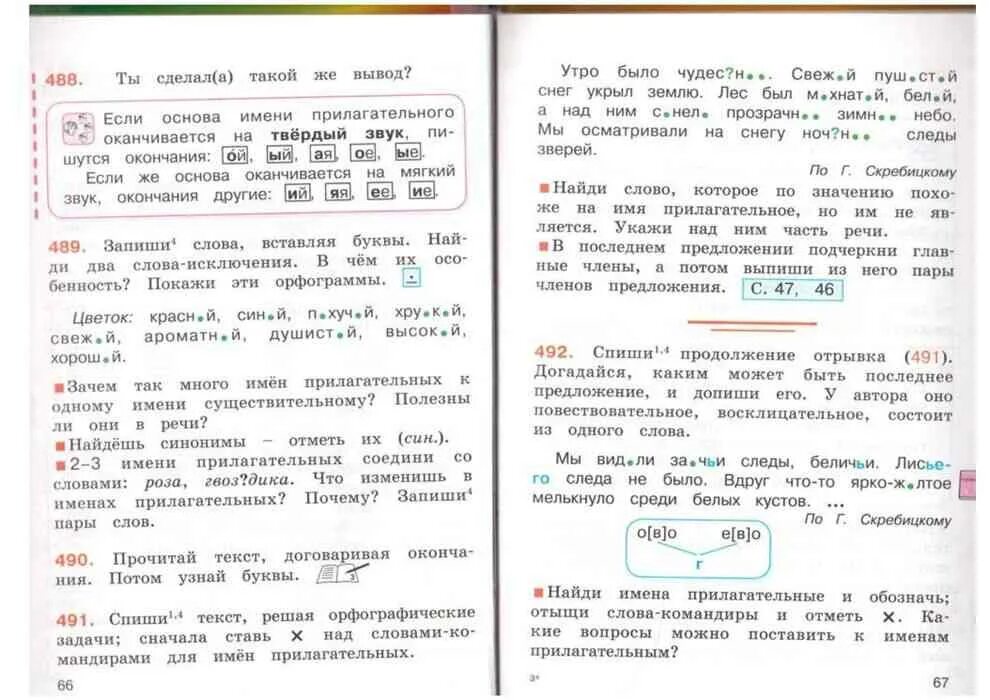 488. Ты сделал(а) такой же вывод?
Если основа имени прилагательного
оканчивается на твёрдый звук, пи-
шутся окончания: ой, ый, ая, ое, ые.
Если же основа оканчивается на мягкий
звук, окончания другие: ий, яя, ее, ие.
489. Запиши⁴ слова, вставляя буквы. Най-
ди два слова-исключения. В чём их осо-
бенность? Покажи эти орфограммы.
Цветок: красн●й, син●й, п●хуч●й, хру●к●й,
свеж●й, ароматн●й, душист●й, высок●й,
хорош●й.
Зачем так много имён прилагательных к
одному имени существительному? Полезны
ли они в речи?
Найдёшь синонимы – отметь их (син.).
2–3 имени прилагательных соедини со
словами: роза, гвоз?дика. Что изменишь в
именах прилагательных? Почему? Запиши⁴
пары слов.
490. Прочитай текст, договаривая оконча-
ния. Потом узнай буквы.
491. Спиши¹·⁴ текст, решая орфографические
задачи; сначала ставь × над словами-ко-
мандирами для имён прилагательных.
66
Утро было чудес?н●●. Свеж●й пуш●ст●й
снег укрыл землю. Лес был м●хнат●й, бел●й,
а над ним с●нел● прозрачн●● зимн●● небо.
Мы осматривали на снегу ноч?н●● следы
зверей.
По Г. Скребицкому
Найди слово, которое по значению похо-
же на имя прилагательное, но им не яв-
ляется. Укажи над ним часть речи.
В последнем предложении подчеркни глав-
ные члены, а потом выпиши из него пары
членов предложения. С. 47, 46
492. Спиши¹·⁴ продолжение отрывка (491).
Догадайся, каким может быть последнее
предложение, и допиши его. У автора оно
повествовательное, восклицательное, состоит
из одного слова.
Мы вид●ли за●чьи следы, беличьи. Лисье-
го следа не было. Вдруг что-то ярко-ж●лтое
мелькнуло среди белых кустов. ...
По Г. Скребицкому
о[в]о е[в]о
г
Найди имена прилагательные и обозначь;
отыщи слова-командиры и отметь ×. Ка-
кие вопросы можно поставить к именам
прилагательным?
3*
67